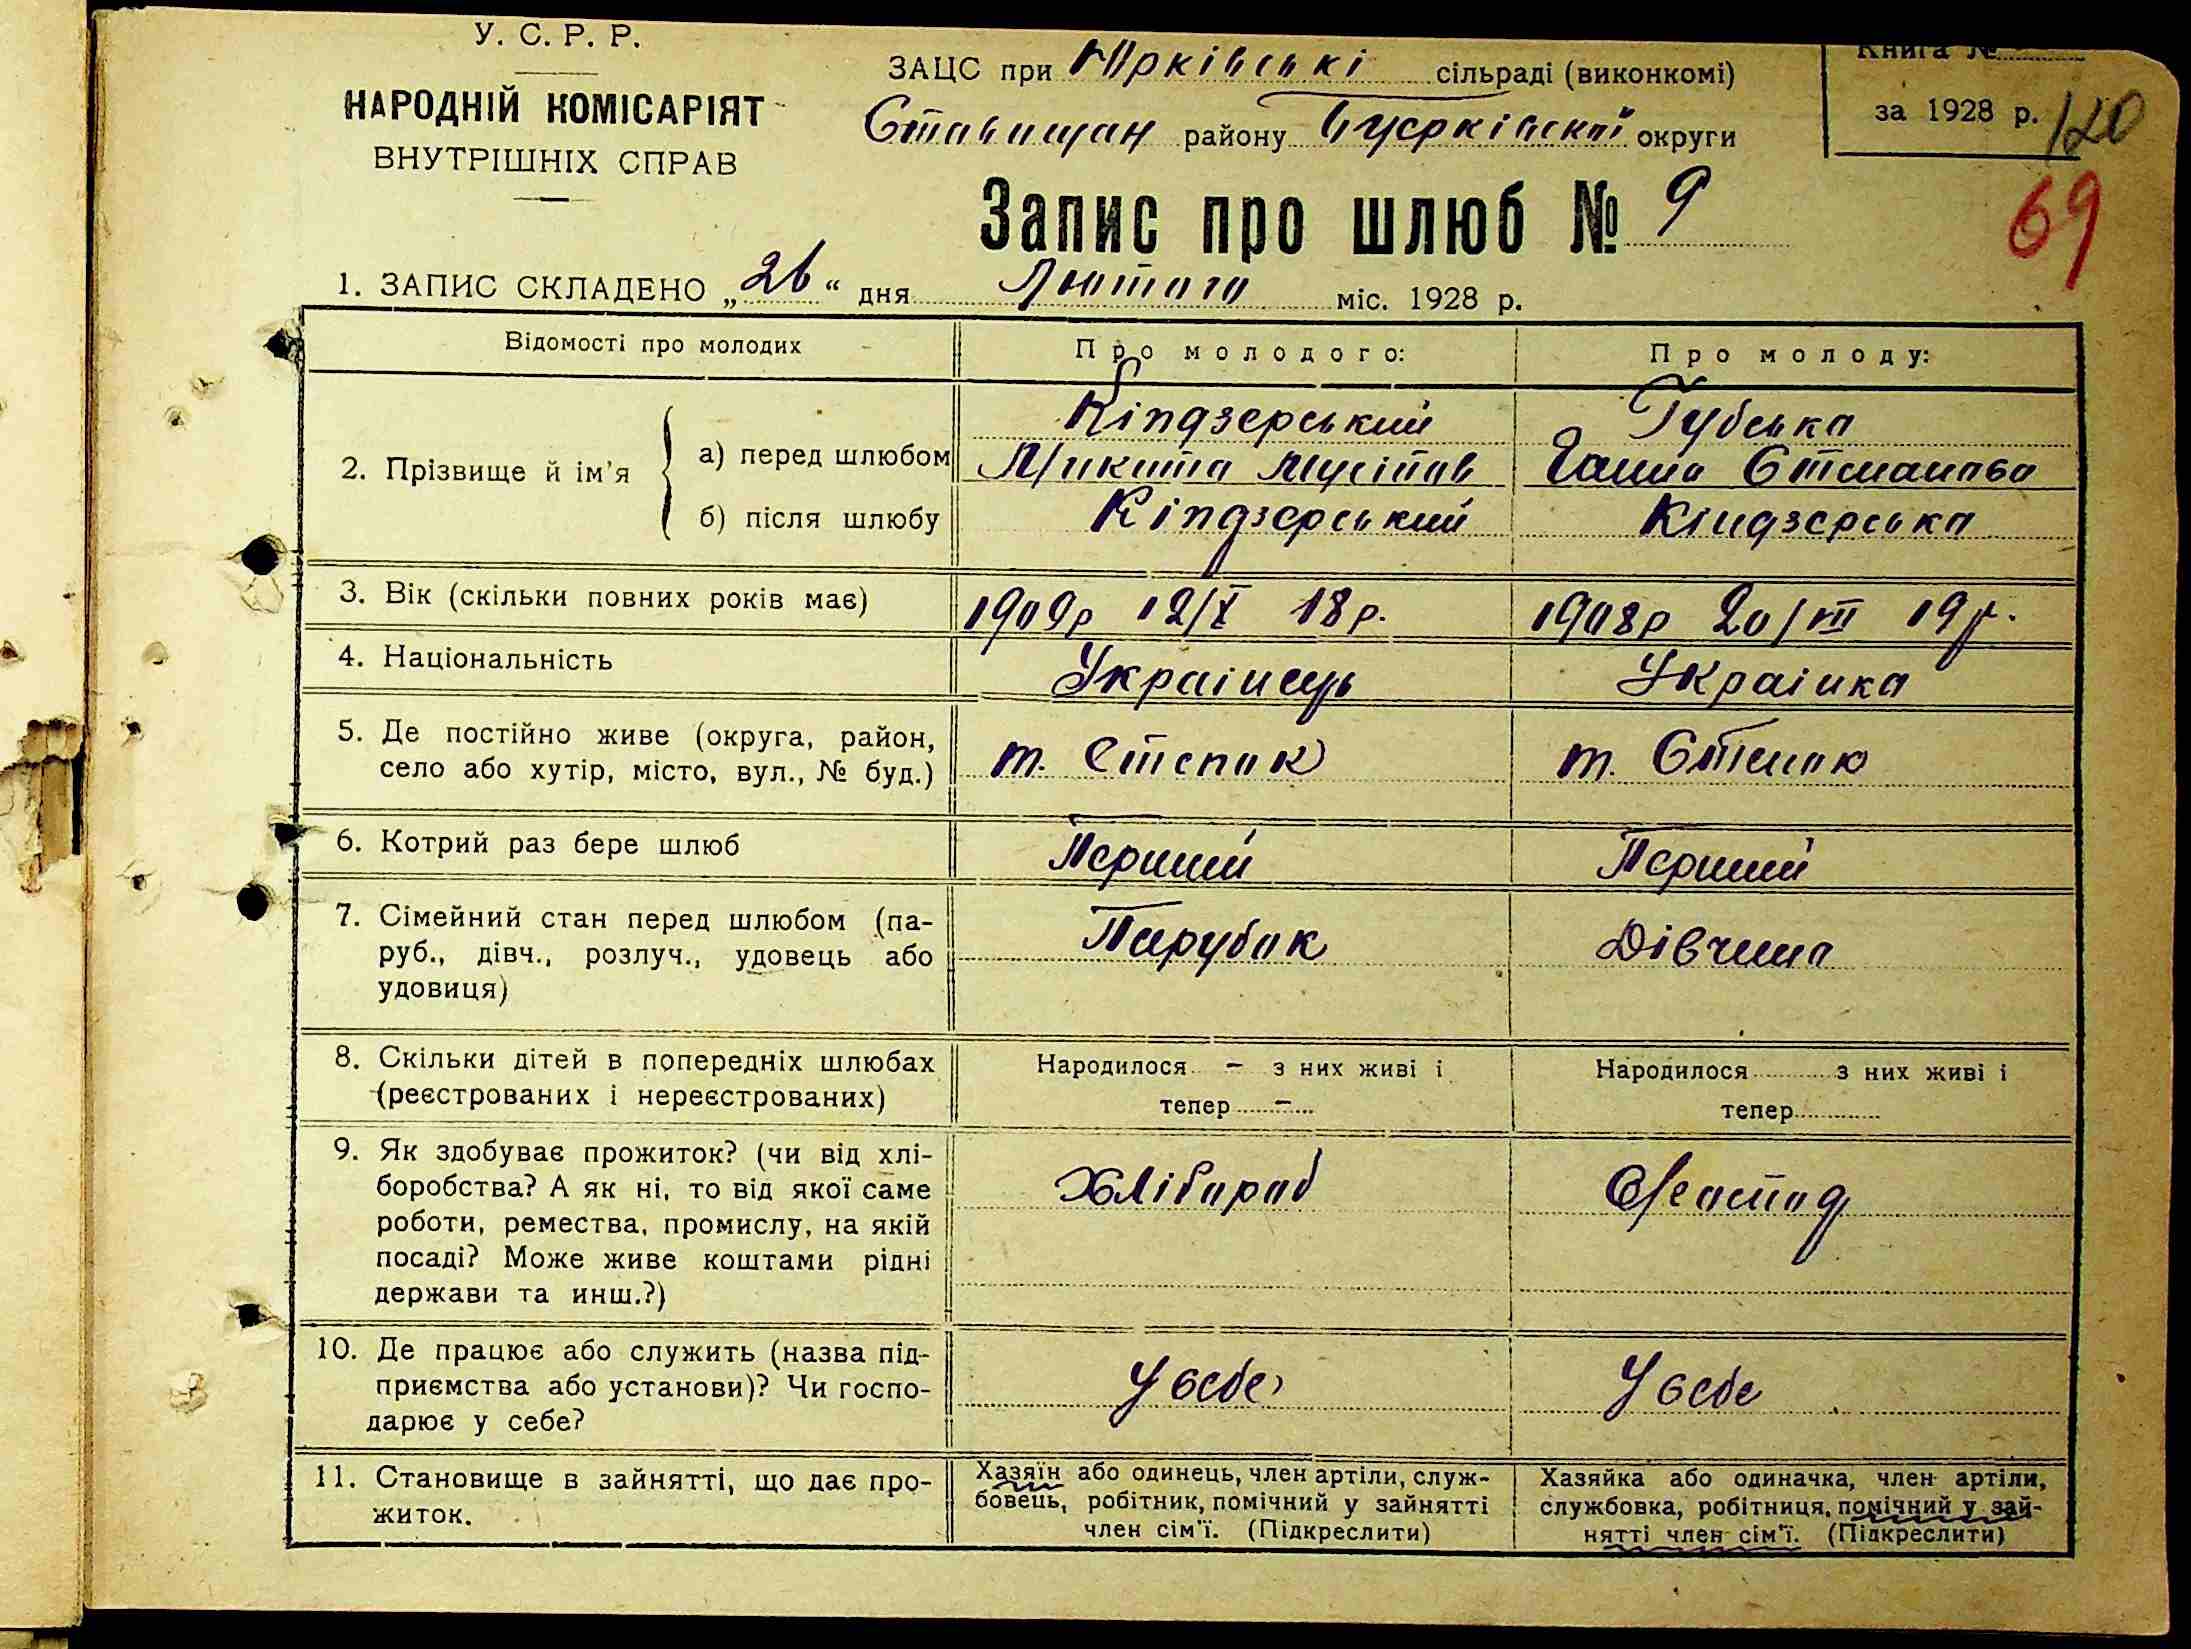 У. С. Р. Р.
НАРОДНІЙ КОМІСАРІЯТ
ВНУТРІШНІХ СПРАВ
ЗАЦС при Юрківські сільраді (виконкомі)
Ставищан району округи
Книга №
за 1928 р. 120
69
Запис про шлюб № 9
1. ЗАПИС СКЛАДЕНО „26“ дня Лютого міс. 1928 р.
Відомості про молодих
Про молодого:
Про молоду:
2. Прізвище й ім'я
а) перед шлюбом
Кіндзерський
Микита
Губська
Ганна
б) після шлюбу
Кіндзерський
Кіндзерська
3. Вік (скільки повних років має)
1909р 12/X 18р.
1908р 20/VII 19р.
4. Національність
Украінець
Украінка
5. Де постійно живе (округа, район,
село або хутір, місто, вул., № буд.)
6. Котрий раз бере шлюб
Перший
Перший
7. Сімейний стан перед шлюбом (па-
руб., дівч., розлуч., удовець або
удовиця)
Парубок
Дівчина
8. Скільки дітей в попередніх шлюбах
(реєстрованих і нереєстрованих)
Народилося – з них живі і
тепер –
Народилося з них живі і
тепер
9. Як здобуває прожиток? (чи від хлі-
боробства? А як ні, то від якої саме
роботи, ремества, промислу, на якій
посаді? Може живе коштами рідні
держави та инш.?)
Хлібороб
10. Де працює або служить (назва під-
приємства або установи)? Чи госпо-
дарює у себе?
У себе
У себе
11. Становище в зайнятті, що дає про-
житок.
Хазяїн або одинець, член артіли, служ-
бовець, робітник, помічний у зайнятті
член сім'ї. (Підкреслити)
Хазяйка або одиначка, член артіли,
службовка, робітниця, помічний у зай-
нятті член сім'ї. (Підкреслити)